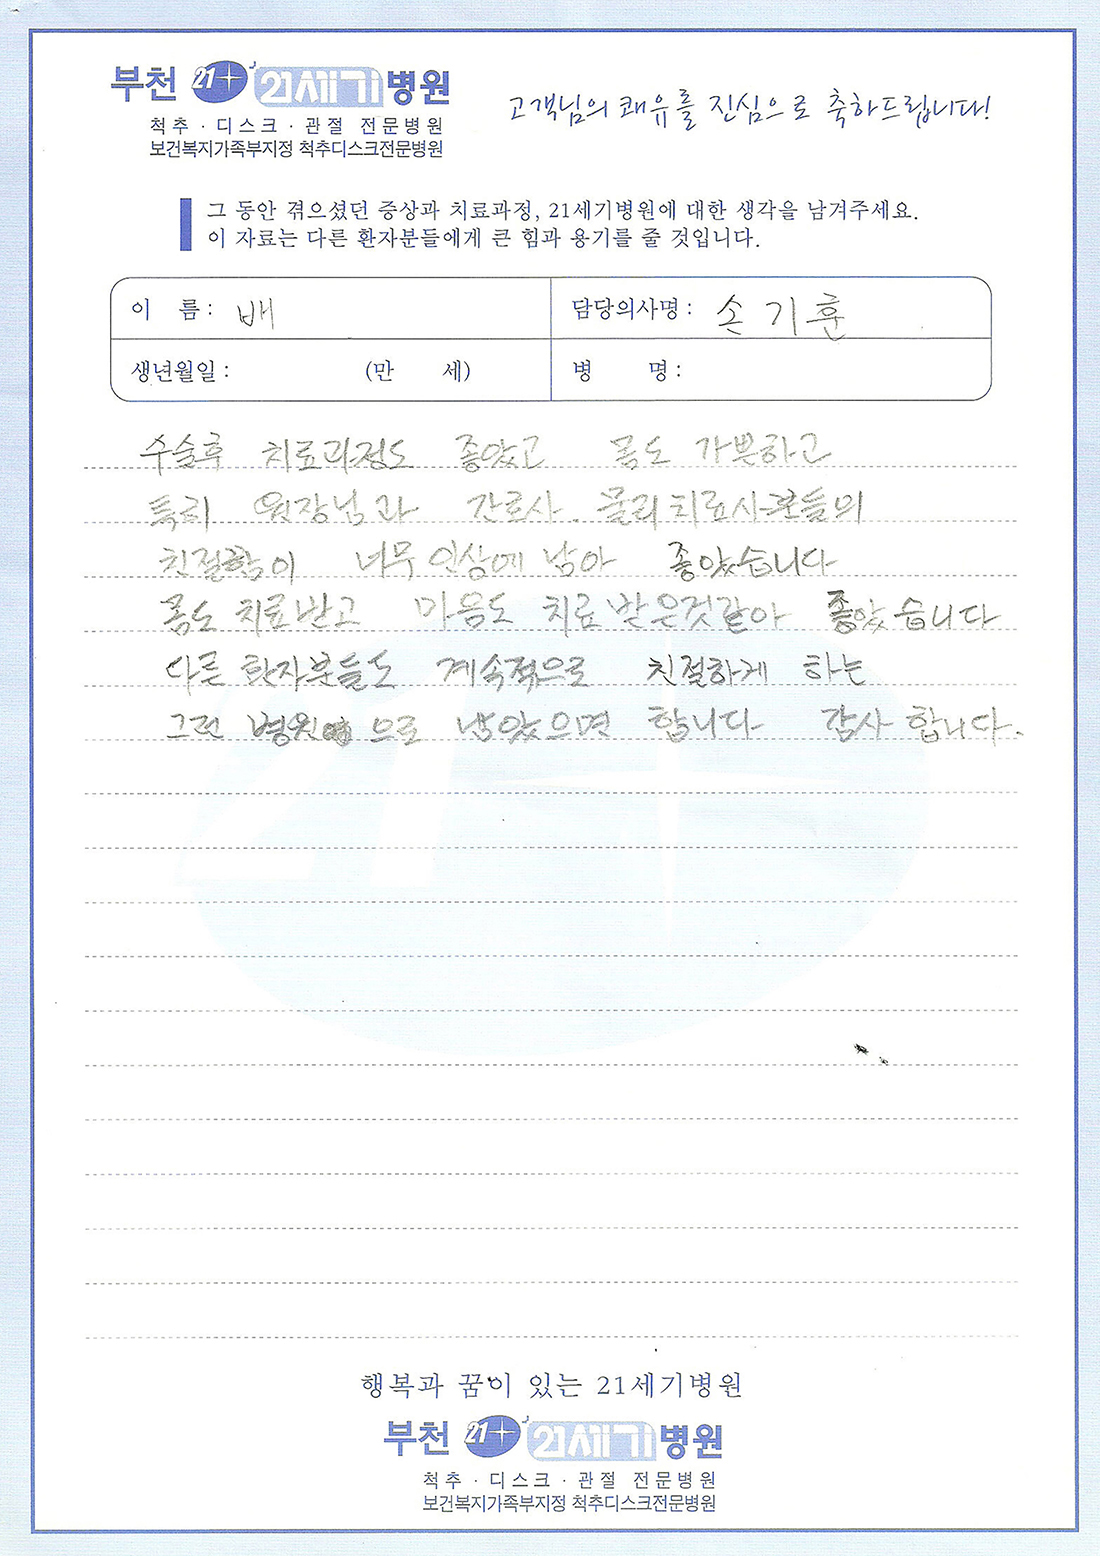 부천 21 21세기병원
고객님의 쾌유를 진심으로 축하드립니다!
척추 · 디스크 · 관절 전문병원
보건복지가족부지정 척추디스크전문병원
그 동안 겪으셨던 증상과 치료과정, 21세기병원에 대한 생각을 남겨주세요.
이 자료는 다른 환자분들에게 큰 힘과 용기를 줄 것입니다.
이 름 : 배
담당의사명 : 손기훈
생년월일 : (만 세)
병 명 :
수술후 치료과정도 좋았고 몸도 가쁜하고
특히 원장님과 간호사. 물리치료사분들의
친절함이 너무 인상에 남아 좋았습니다
몸도 치료받고 마음도 치료 받은것같아 좋았습니다
다른 환자분들도 계속적으로 친절하게 하는
그런 병원 으로 남았으면 합니다 감사합니다.
행복과 꿈이 있는 21세기병원
부천 21 21세기병원
척추 · 디스크 · 관절 전문병원
보건복지가족부지정 척추디스크전문병원